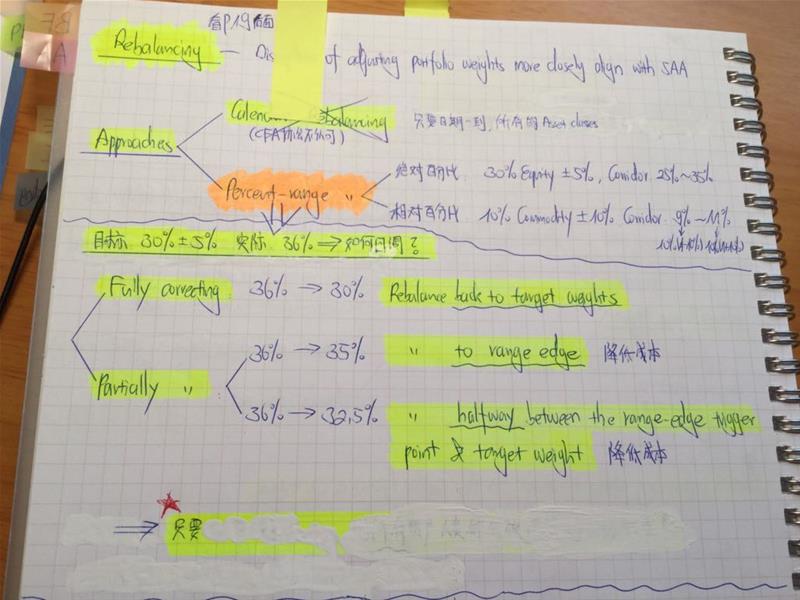 看P19后面
Rebalancing — Dis of adjusting portfolio weights more closely align with SAA
Approaches
Calen balancing 只要日期一到, 所有的 Asset classes
Percent-range 〃
绝对百分比 30% Equity ±5%, Corridor 25%~35%
相对百分比 10% Commodity ±10% Corridor 9% ~ 11%
目标 30%±5% 实际 36% ⇒ 如何回调?
Fully correcting 36% → 30% Rebalance back to target weights
Partially 〃
36% → 35% 〃 to range edge 降低成本
36% → 32.5% 〃 halfway between the range-edge trigger
point & target weight 降低成本
⇒ 只要